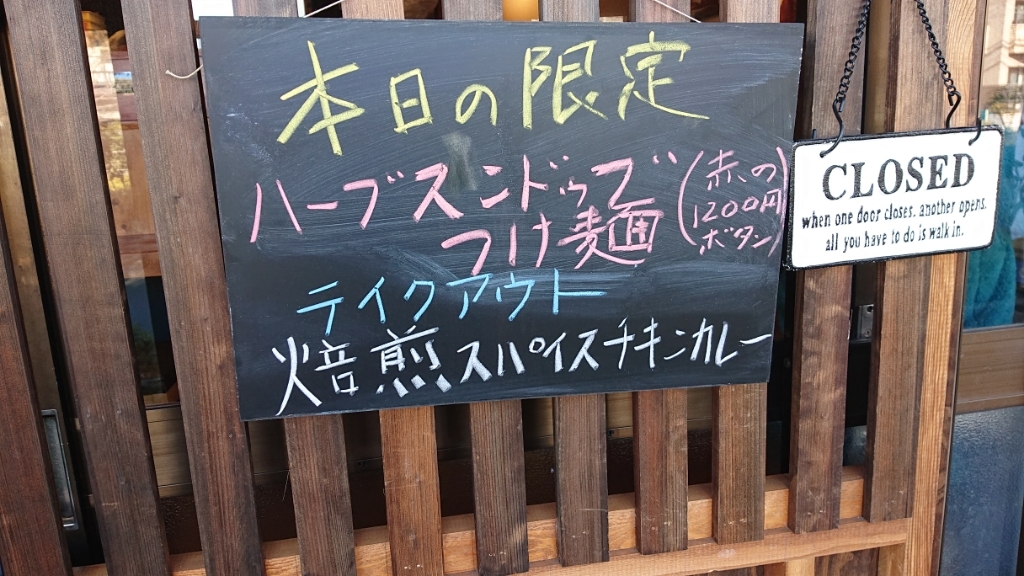 本日の限定
ハーブスンドゥブ
つけ麺
(赤の
1200円
ボタン)
テイクアウト
焙煎スパイスチキンカレー
CLOSED
when one door closes, another opens.
all you have to do is walk in.